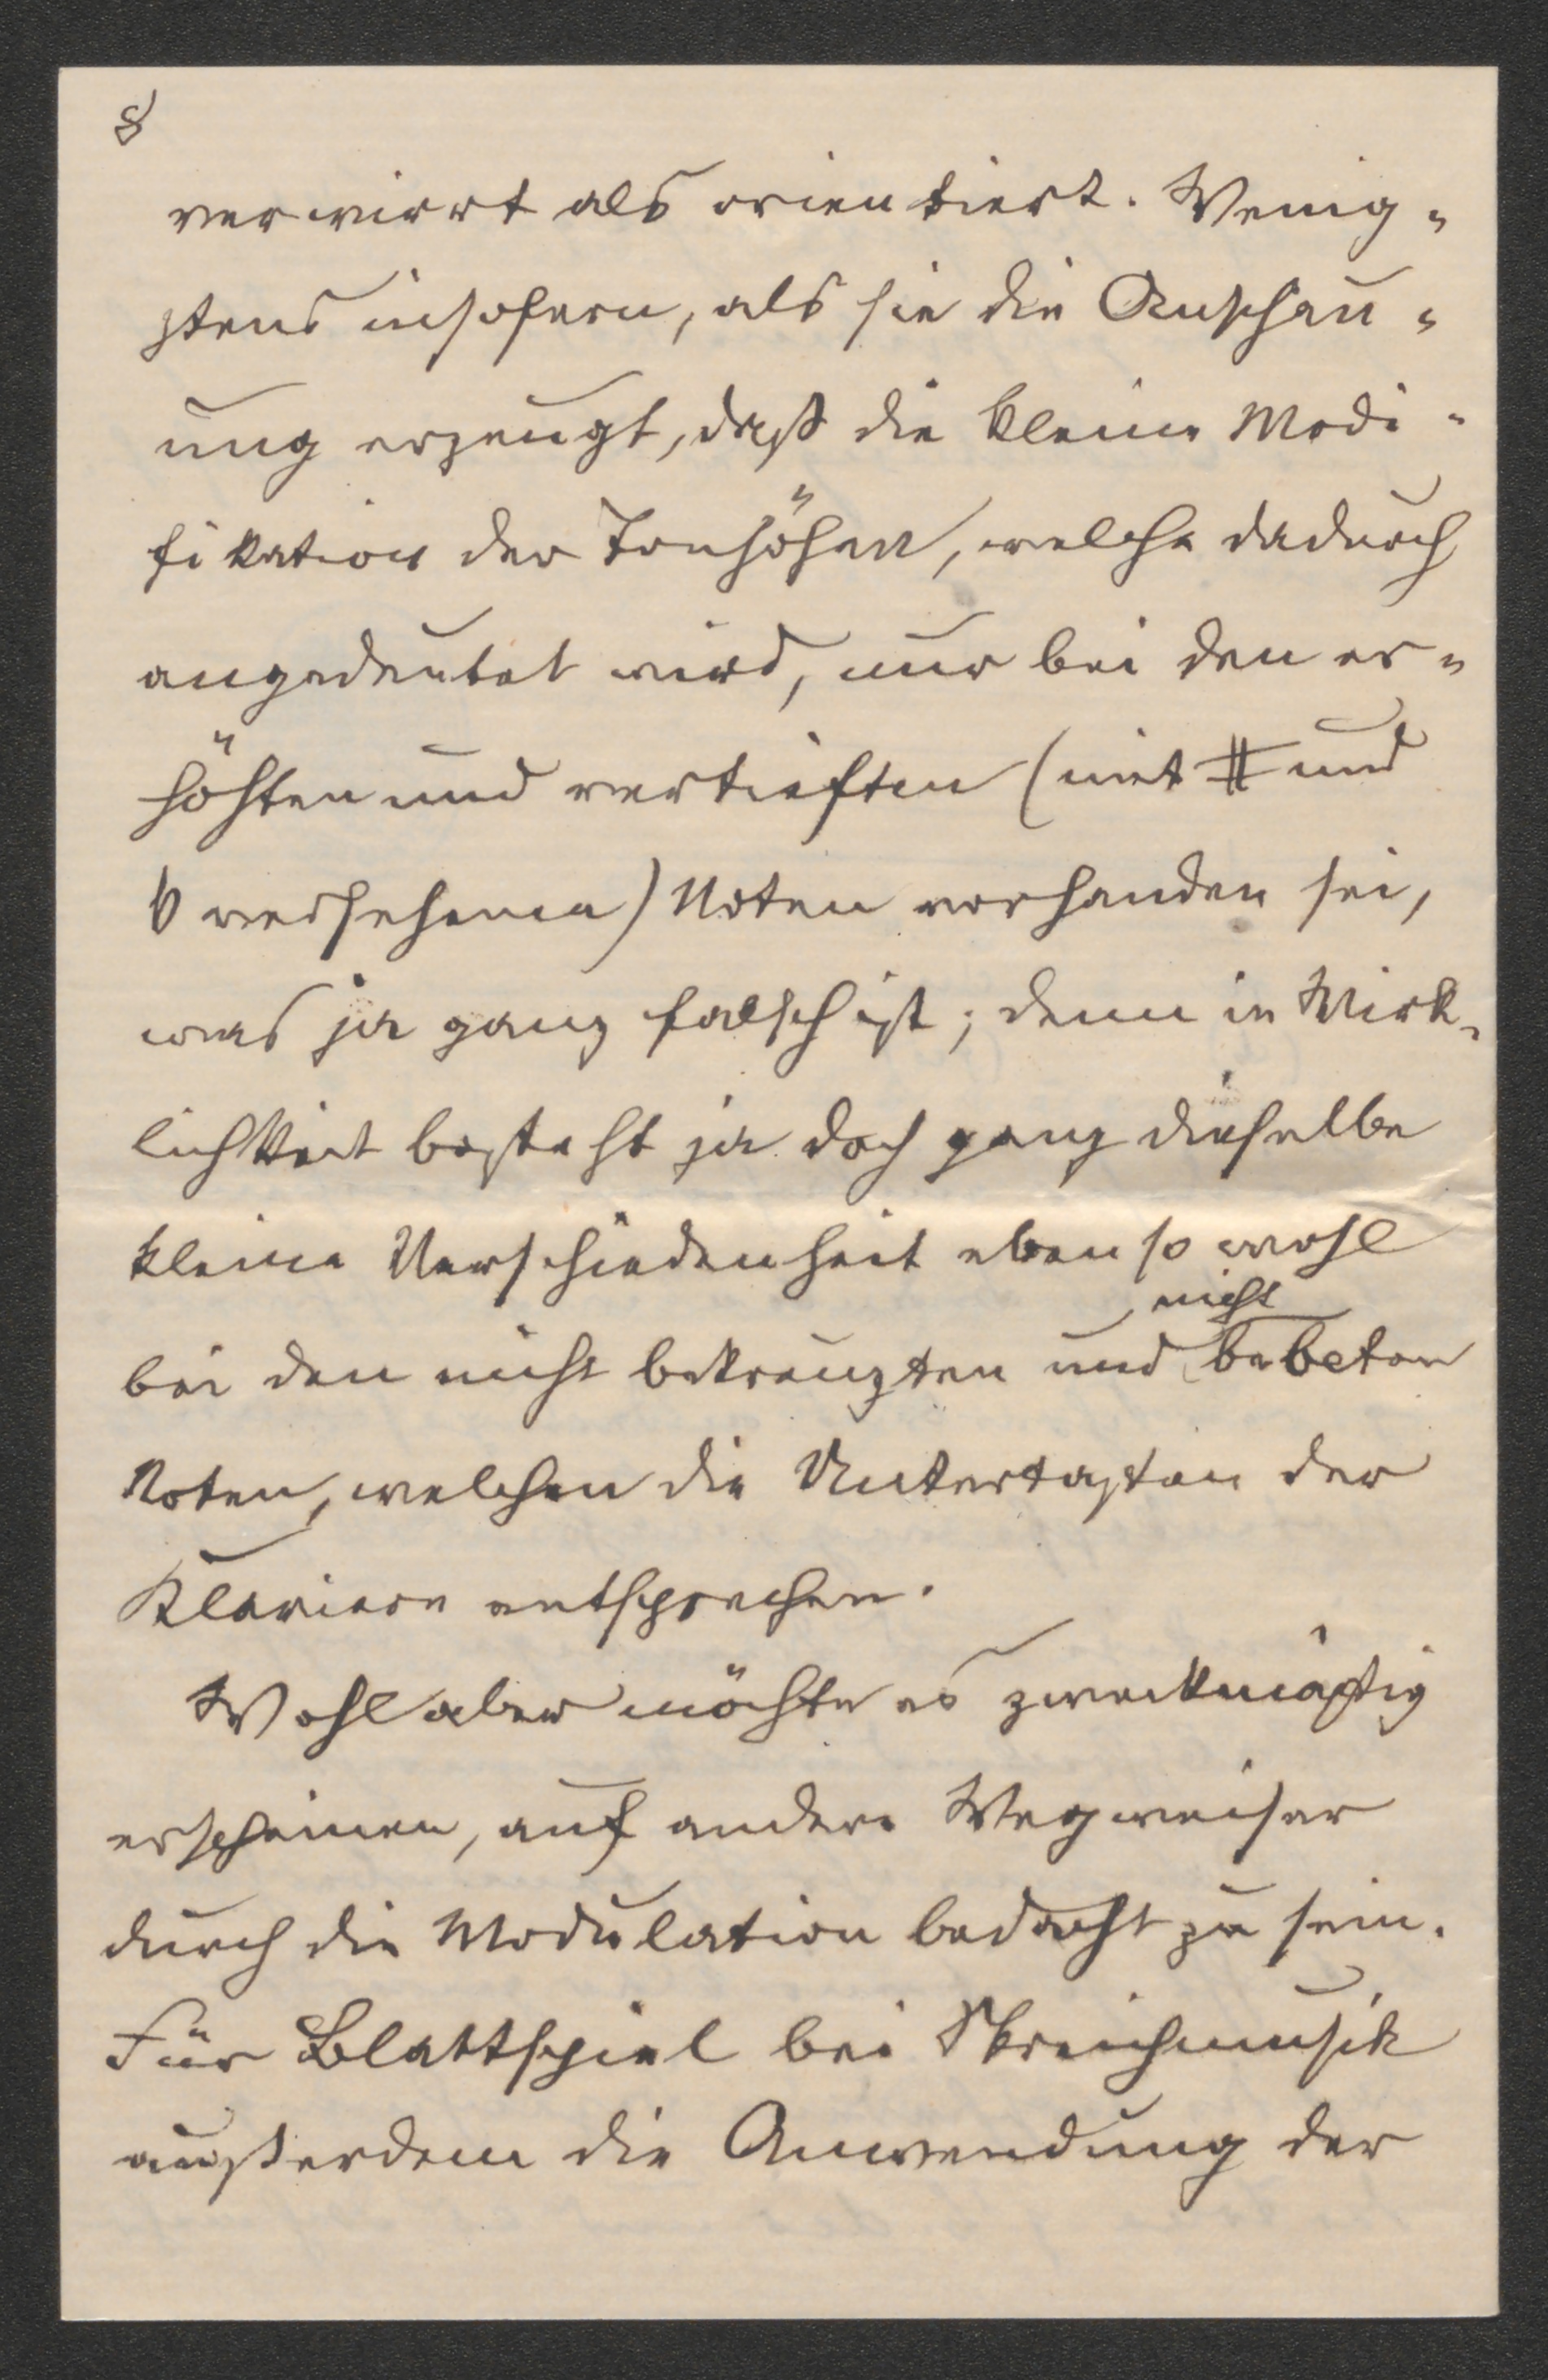 8
verwirrt als orientiert. Wenig=
stens insofern, als sie die Anschau=
ung erzeugt, daß die kleine Modi=
fikation der Tonhöhen, welche dadurch
angedeutet wird, nur bei den er=
höhten und vertieften (mit ♯ und
♭ versehenen) Noten vorhanden sei,
was ja ganz falsch ist; denn in Wirk=
lichkeit besteht ja doch ganz dieselbe
kleine Verschiedenheit ebenso wohl
nicht
bei den nicht bekreuzten und bebeten
Noten, welchen die Untertasten der
Klaviere entsprechen.
Wohl aber möchte es zweckmäßig
erscheinen, auf andere Wegweiser
durch die Modulation bedacht zu sein.
Für Blattspiel bei Streichmusik
außerdem die Anwendung der